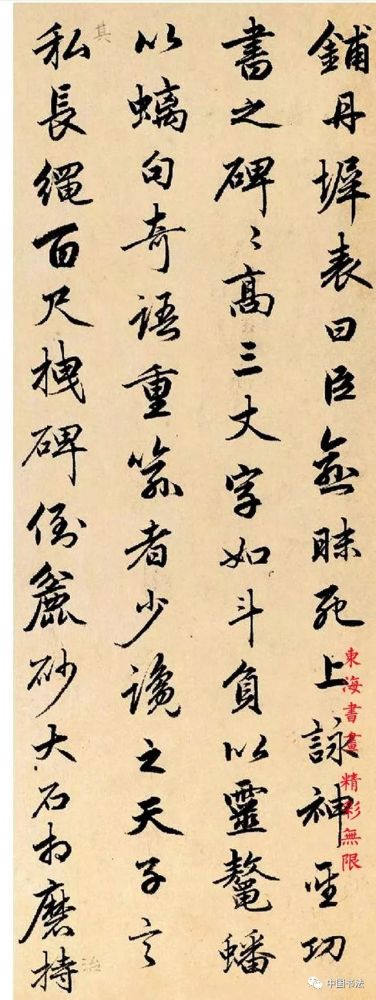 鋪丹墀表曰臣愈昧死上詠神聖功
書之碑〻高三丈字如斗負以靈鼇蟠
以螭句奇語重喻者少讒之天子言
其
私長繩百尺拽碑倒麄砂大石相磨持
治
東海書畫精彩無限
中国书法